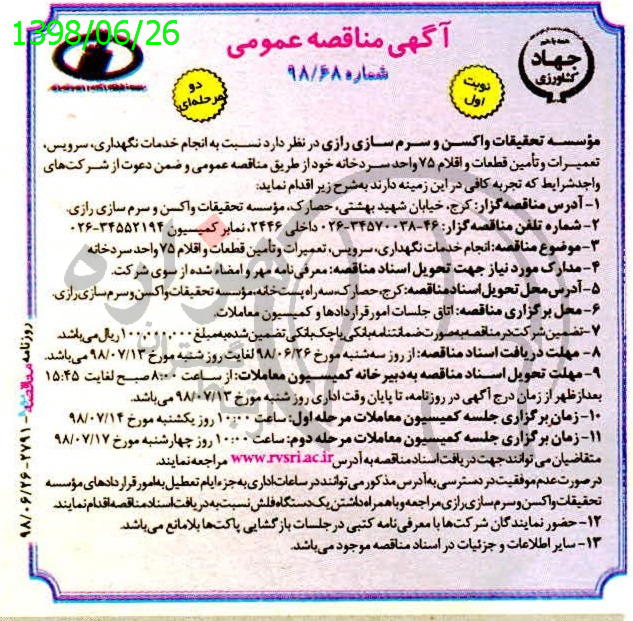 1398/06/26
آگهی مناقصه عمومی
شماره ۹۸/۶۸
همه با هم
جهاد
کشاورزی
دو
مرحله‌ای
نوبت
اول
مؤسسه تحقیقات واکسن و سرم سازی رازی در نظر دارد نسبت به انجام خدمات نگهداری، سرویس،
تعمیرات و تأمین قطعات و اقلام ۷۵ واحد سردخانه خود از طریق مناقصه عمومی و ضمن دعوت از شرکت‌های
واجد شرایط که تجربه کافی در این زمینه دارند به‌شرح زیر اقدام نماید:
۱- آدرس مناقصه گزار: کرج، خیابان شهید بهشتی، حصارک، مؤسسه تحقیقات واکسن و سرم سازی رازی.
۲- شماره تلفن مناقصه گزار: ۴۶-۳۴۵۷۰۰۳۸-۰۲۶ داخلی ۲۴۴۶، نمابر کمیسیون ۳۴۵۵۲۱۹۴-۰۲۶
۳- موضوع مناقصه: انجام خدمات نگهداری، سرویس، تعمیرات و تأمین قطعات و اقلام ۷۵ واحد سردخانه
۴- مدارک مورد نیاز جهت تحویل اسناد مناقصه: معرفی نامه مهر و امضاء شده از سوی شرکت.
۵- آدرس محل تحویل اسناد مناقصه: کرج، حصارک، سه راه پست خانه، مؤسسه تحقیقات واکسن و سرم سازی رازی.
۶- محل برگزاری مناقصه: اتاق جلسات امور قراردادها و کمیسیون معاملات.
۷- تضمین شرکت در مناقصه به صورت ضمانتنامه بانکی یا چک بانکی تضمین شده به مبلغ ۱۰۰۰۰۰۰۰۰۰ ریال می‌باشد.
۸- مهلت دریافت اسناد مناقصه: از روز سه شنبه مورخ ۹۸/۰۶/۲۶ لغایت روز شنبه مورخ ۹۸/۰۷/۱۳ می‌باشد.
۹- مهلت تحویل اسناد مناقصه به دبیرخانه کمیسیون معاملات: از ساعت ۸:۰۰ صبح لغایت ۱۵:۴۵
بعدازظهر از زمان درج آگهی در روزنامه، تا پایان وقت اداری روز شنبه مورخ ۹۸/۰۷/۱۳ می‌باشد.
۱۰- زمان برگزاری جلسه کمیسیون معاملات مرحله اول: ساعت ۱۰:۰۰ روز یکشنبه مورخ ۹۸/۰۷/۱۴
۱۱- زمان برگزاری جلسه کمیسیون معاملات مرحله دوم: ساعت ۱۰:۰۰ روز چهارشنبه مورخ ۹۸/۰۷/۱۷
متقاضیان می‌توانند جهت دریافت اسناد مناقصه به آدرس www.rvsri.ac.ir مراجعه نمایند.
در صورت عدم موفقیت در دسترسی به آدرس مذکور می‌توانند در ساعات اداری به جزء ایام تعطیل به امور قراردادهای مؤسسه
تحقیقات واکسن و سرم سازی رازی مراجعه و با همراه داشتن یک دستگاه فلش نسبت به دریافت اسناد مناقصه اقدام نمایند.
۱۲- حضور نمایندگان شرکت‌ها با معرفی نامه کتبی در جلسات بازگشایی پاکت‌ها بلامانع می‌باشد.
۱۳- سایر اطلاعات و جزئیات در اسناد مناقصه موجود می‌باشد.
روزنامه مناقصه - ۲۷۹۱ - ۹۸/۰۶/۲۶